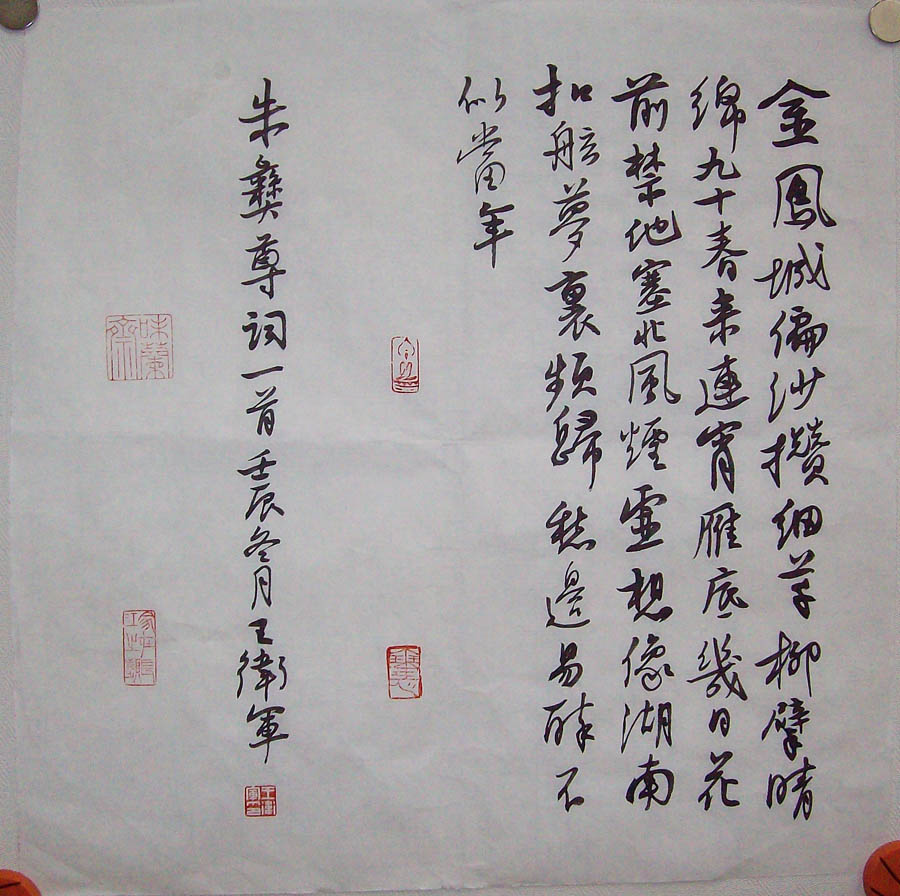 金鳳城偏沙攢細草柳擘晴
綿九十春来連宵雁底幾日花
前禁他塞北風煙虛想像湖南
扣舷夢裏頻歸愁邊易醉不
似當年
朱彝尊詞一首壬辰冬月王衛軍